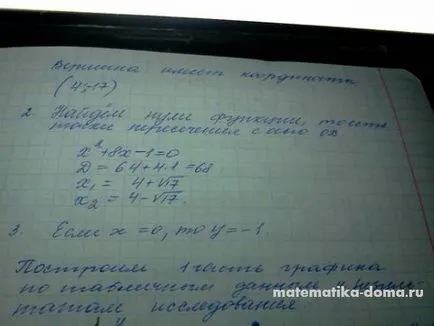 Вершина имеет координаты
(4;17)
2. Найдём нули функции, то есть
точки пересечения с осью OX
x²+8x-1=0
D=64+4·1=68
x₁= 4+√17
x₂= 4-√17.
3. Если x=0, то y=-1.
Построим 1 часть графика
по табличным данным и
исследования
matematika-doma.ru